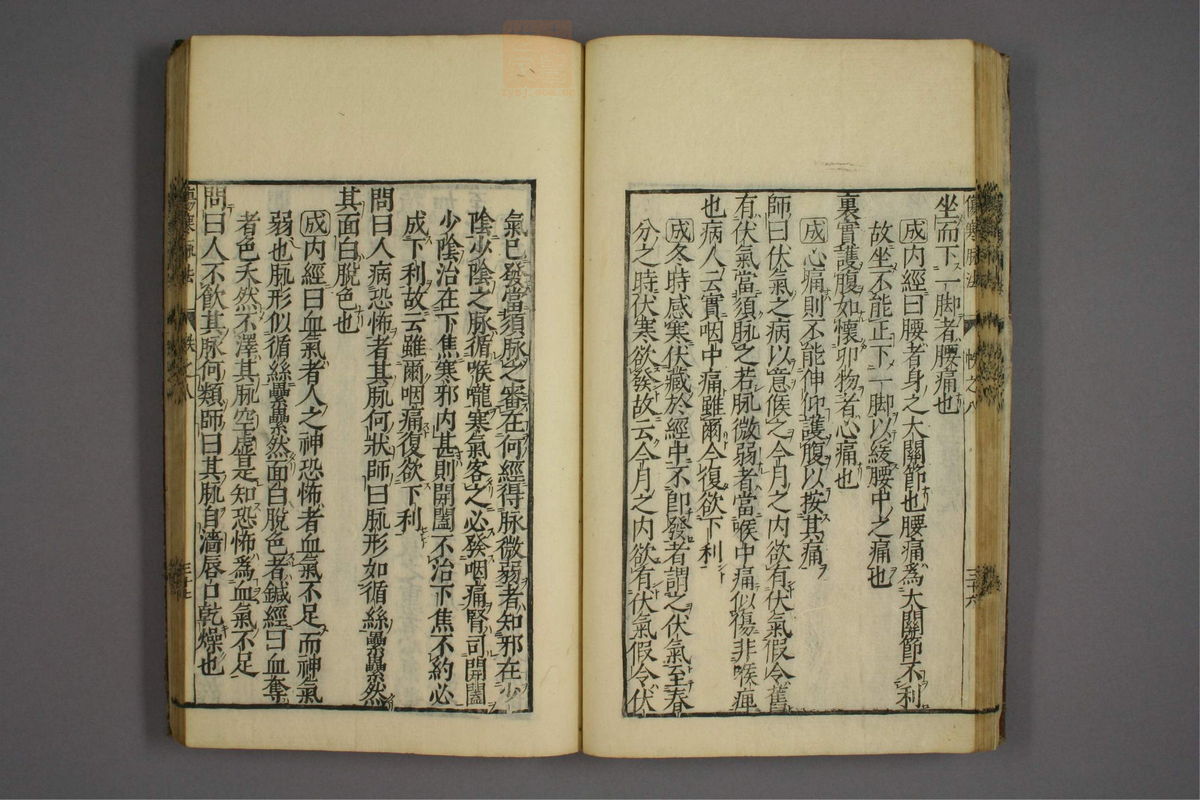 坐而下一脚者腰痛也
成内經曰腰者身之大關節也腰痛爲大關節不利
故坐不能正下一脚以緩腰中之痛也
裏實護腹如懷卵物者心痛也
成心痛則不能伸仰護腹以按其痛
師曰伏氣之病以意候之今月之内欲有伏氣假令舊
有伏氣當須脉之若脉微弱者當喉中痛似傷非喉痺
也病人云實咽中痛雖爾今復欲下利
成冬時感寒伏藏於經中不卽發者謂之伏氣至春
分之時伏寒欲發故云今月之内欲有伏氣假令伏
氣已發當須脉之審在何經得脉微弱者知邪在少
陰少陰之脉循喉嚨寒氣客之必發咽痛腎司開闔
少陰治在下焦寒邪内甚則開闔不治下焦不約必
成下利故云雖爾咽痛復欲下利
問曰人病恐怖者其脉何狀師曰脉形如循絲纍纍然
其面白脫色也
成内經曰血氣者人之神恐怖者血氣不足而神氣
弱也脉形似循絲纍纍然面白脫色者鍼經曰血奪
者色夭然不澤其脉空虛是知恐怖爲血氣不足
問曰人不飲其脉何類師曰其脉自濇唇口乾燥也